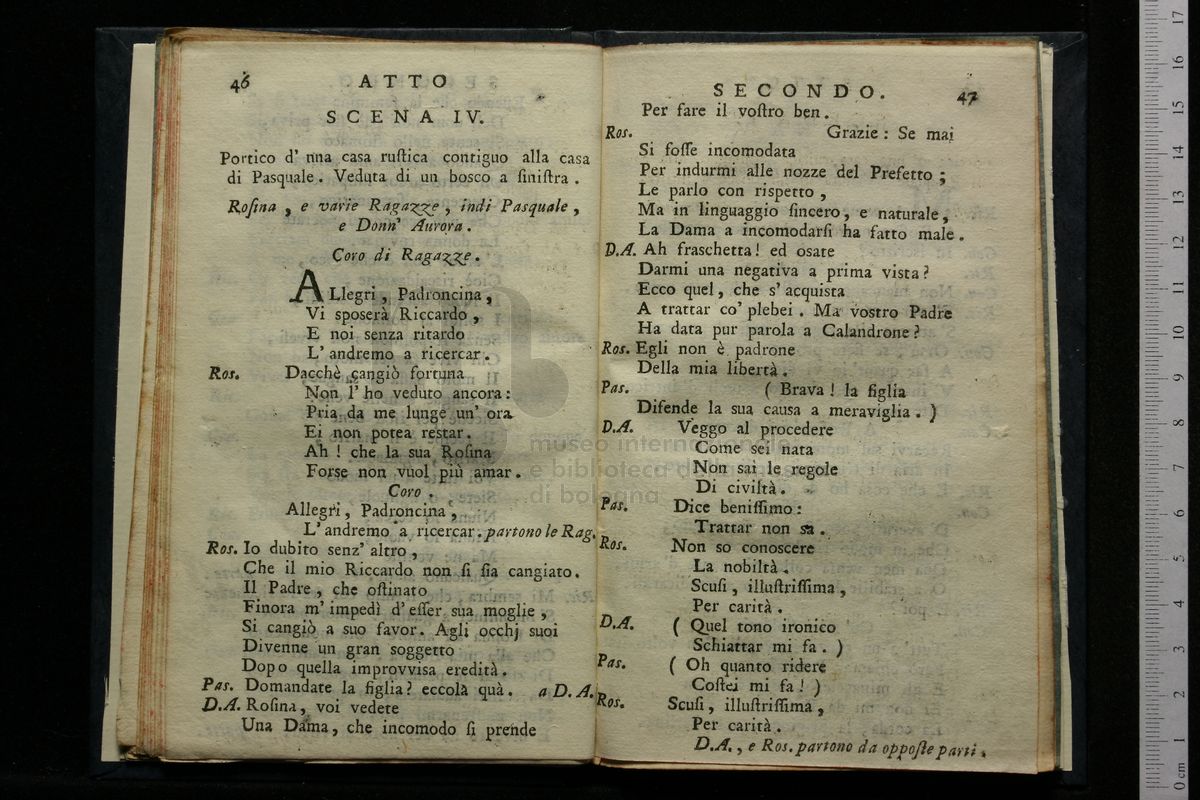 46
ATTO
SCENA IV.
Portico d' nna casa ruſtica contiguo alla casa
di Pasquale. Veduta di un bosco a ſiniſtra.
Roſina, e varie Ragazze, indi Pasquale,
e Donn' Aurora.
Coro di Ragazze.
ALlegri, Padroncina,
Vi sposerà Riccardo,
E noi senza ritardo
L' andremo a ricercar.
Ros. Dacchè cangiò fortuna
Non l' ho veduto ancora:
Pria da me lunge un' ora
Ei non potea restar.
Ah! che la sua Roſina
Forse non vuol più amar.
Coro.
Allegri, Padroncina,
L' andremo a ricercar. partono le Rag.
Ros. Io dubito senz' altro,
Che il mio Riccardo non ſi ſia cangiato.
Il Padre, che oſtinato
Finora m' impedì d' eſſer sua moglie,
Si cangiò a suo favor. Agli occhj suoi
Divenne un gran soggetto
Dopo quella improvvisa eredità.
Pas. Domandate la figlia? eccola quà. a D. A.
D.A. Roſina, voi vedete
Una Dama, che incomodo ſi prende
SECONDO.
47
Per fare il voſtro ben.
Ros. Grazie: Se mai
Si foſſe incomodata
Per indurmi alle nozze del Prefetto;
Le parlo con rispetto,
Ma in linguaggio ſincero, e naturale,
La Dama a incomodarſi ha fatto male.
D.A. Ah fraschetta! ed osate
Darmi una negativa a prima vista?
Ecco quel, che s' acquista
A trattar co' plebei. Ma vostro Padre
Ha data pur parola a Calandrone?
Ros. Egli non è padrone
Della mia libertà.
Pas. (Brava! la figlia
Difende la sua causa a meraviglia.)
D.A. Veggo al procedere
Come sei nata
Non sai le regole
Di civiltà.
Pas. Dice beniſſimo:
Trattar non sa.
Ros. Non so conoscere
La nobiltà.
Scuſi, illuſtriſſima,
Per carità.
D.A. (Quel tono ironico
Schiattar mi fa.)
Pas. (Oh quanto ridere
Coſtei mi fa!)
Ros. Scuſi, illuſtriſſima,
Per carità.
D.A., e Ros. partono da oppoſte parti.
museo internazionale
e biblioteca della musica
di bologna
0 cm 1 2 3 4 5 6 7 8 9 10 11 12 13 14 15 16 17